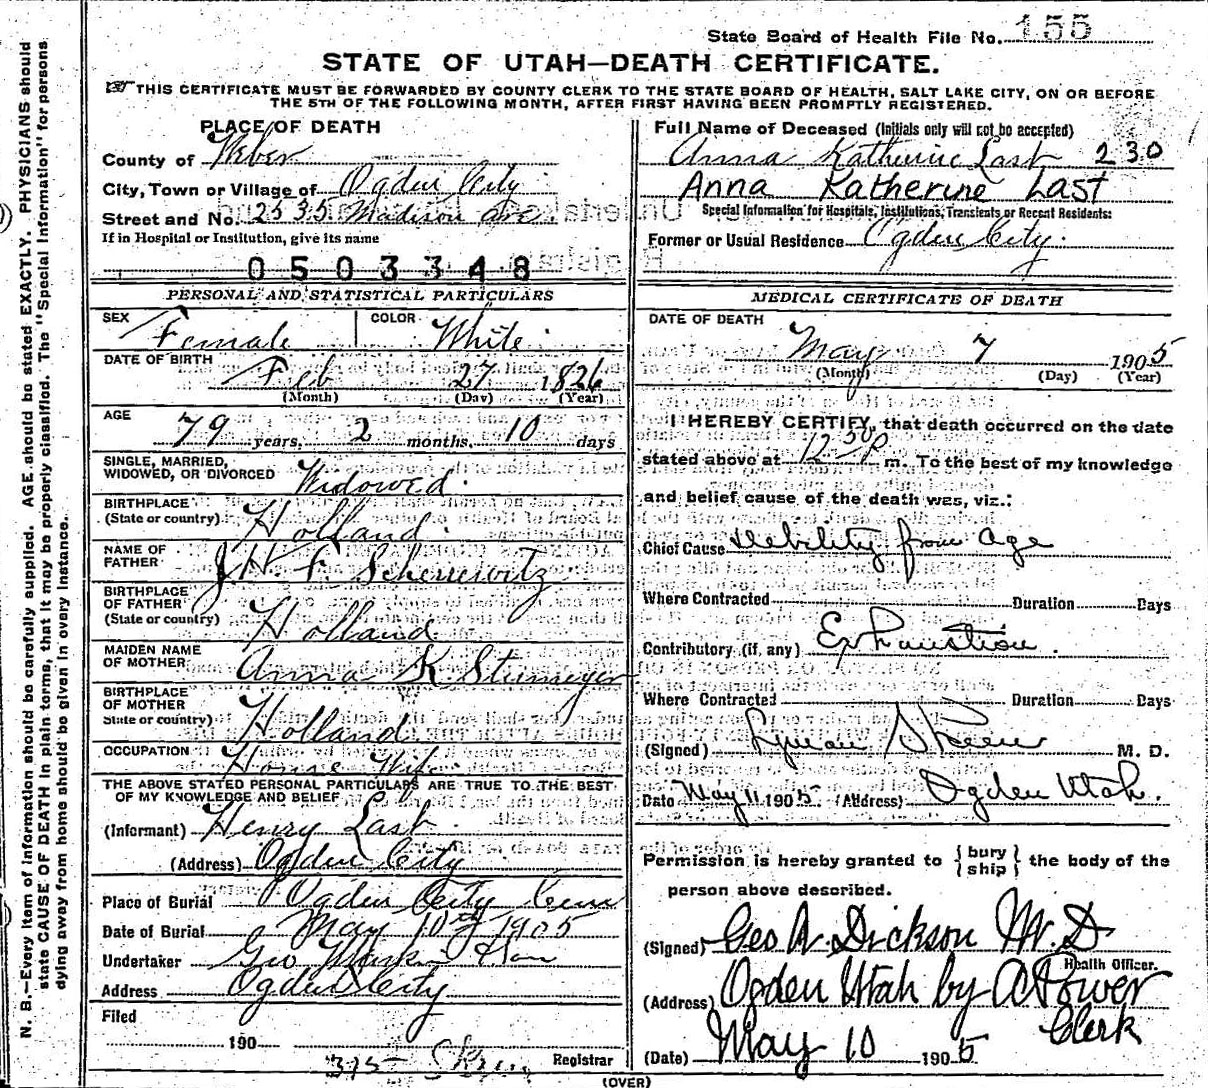 State Board of Health File No. 155
STATE OF UTAH—DEATH CERTIFICATE.
THIS CERTIFICATE MUST BE FORWARDED BY COUNTY CLERK TO THE STATE BOARD OF HEALTH, SALT LAKE CITY, ON OR BEFORE
THE 5TH OF THE FOLLOWING MONTH, AFTER FIRST HAVING BEEN PROMPTLY REGISTERED.
PLACE OF DEATH
County of Weber
City, Town or Village of Ogden City
Street and No. 2535 Madison ave
If in Hospital or Institution, give its name
0503348
Full Name of Deceased (Initials only will not be accepted)
Anna Katherine Last 230
Anna Katherine Last
Special Information for Hospitals, Institutions, Transients or Recent Residents:
Former or Usual Residence Ogden City.
PERSONAL AND STATISTICAL PARTICULARS
SEX Female COLOR White
DATE OF BIRTH
Feb 27 1826
(Month) (Day) (Year)
AGE
79 years, 2 months, 10 days
SINGLE, MARRIED,
WIDOWED, OR DIVORCED Widowed.
BIRTHPLACE
(State or country) Holland.
NAME OF
FATHER J. H. F.
BIRTHPLACE
OF FATHER
(State or country) Holland.
MAIDEN NAME
OF MOTHER Anna K. Stumeyer
BIRTHPLACE
OF MOTHER
State or country) Holland.
OCCUPATION House Wife
THE ABOVE STATED PERSONAL PARTICULARS ARE TRUE TO THE BEST
OF MY KNOWLEDGE AND BELIEF
(Informant) Henry Last
(Address) Ogden City
Place of Burial Ogden City Cem
Date of Burial May 10th 1905
Undertaker Geo
Address Ogden City
Filed
190
375 Registrar
MEDICAL CERTIFICATE OF DEATH
DATE OF DEATH
May 7 1905
(Month) (Day) (Year)
I HEREBY CERTIFY, that death occurred on the date
stated above at 12-50 P m. To the best of my knowledge
and belief cause of the death was, viz.:
Chief Cause Debility from age
Where Contracted Duration Days
Contributory (if any) Exhaustion.
Where Contracted Duration Days
(Signed) Lyman Skeen M. D.
Date May 11 1905 (Address) Ogden Utah.
Permission is hereby granted to { bury ship } the body of the
person above described.
(Signed) Geo A. Dickson M. D
Health Officer.
(Address) Ogden Utah by A Power
Clerk
(Date) May 10 1905
(OVER)
N. B.—Every item of information should be carefully supplied. AGE should be stated EXACTLY. PHYSICIANS should
state CAUSE OF DEATH in plain terms, that it may be properly classified. The "Special Information" for persons
dying away from home should be given in every instance.